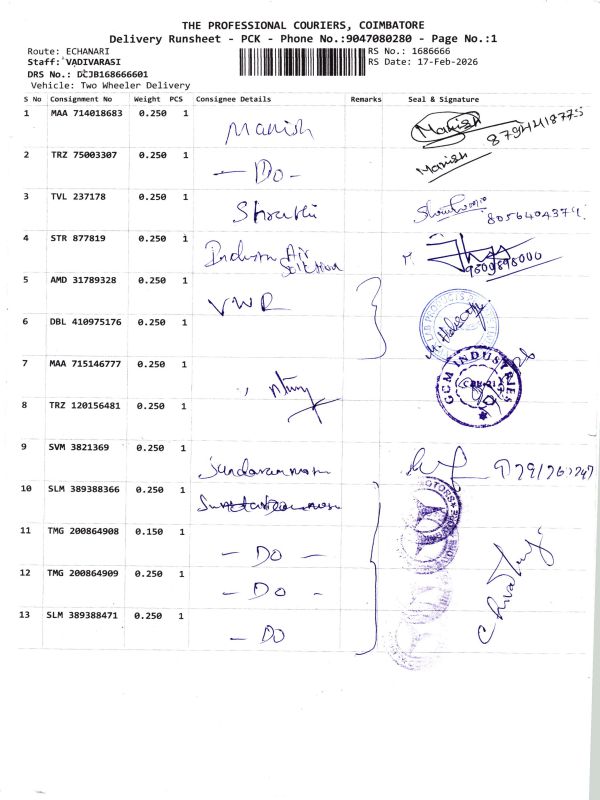 THE PROFESSIONAL COURIERS, COIMBATORE
Delivery Runsheet - PCK - Phone No.:9047080280 - Page No.:1
Route: ECHANARI RS No.: 1686666
Staff: VADIVARASI RS Date: 17-Feb-2026
DRS No.: DCJB168666601
Vehicle: Two Wheeler Delivery
S No Consignment No Weight PCS Consignee Details Remarks Seal & Signature
1 MAA 714018683 0.250 1 Manish Manish
2 TRZ 75003307 0.250 1 — Do - Manish
3 TVL 237178 0.250 1
4 STR 877819 0.250 1 Air 9609898000
5 AMD 31789328 0.250 1 VWR
6 DBL 410975176 0.250 1
7 MAA 715146777 0.250 1 GCM INDUSTRIES
8 TRZ 120156481 0.250 1
9 SVM 3821369 0.250 1
10 SLM 389388366 0.250 1
11 TMG 200864908 0.150 1 — Do —
12 TMG 200864909 0.250 1 — Do -
13 SLM 389388471 0.250 1 — DO